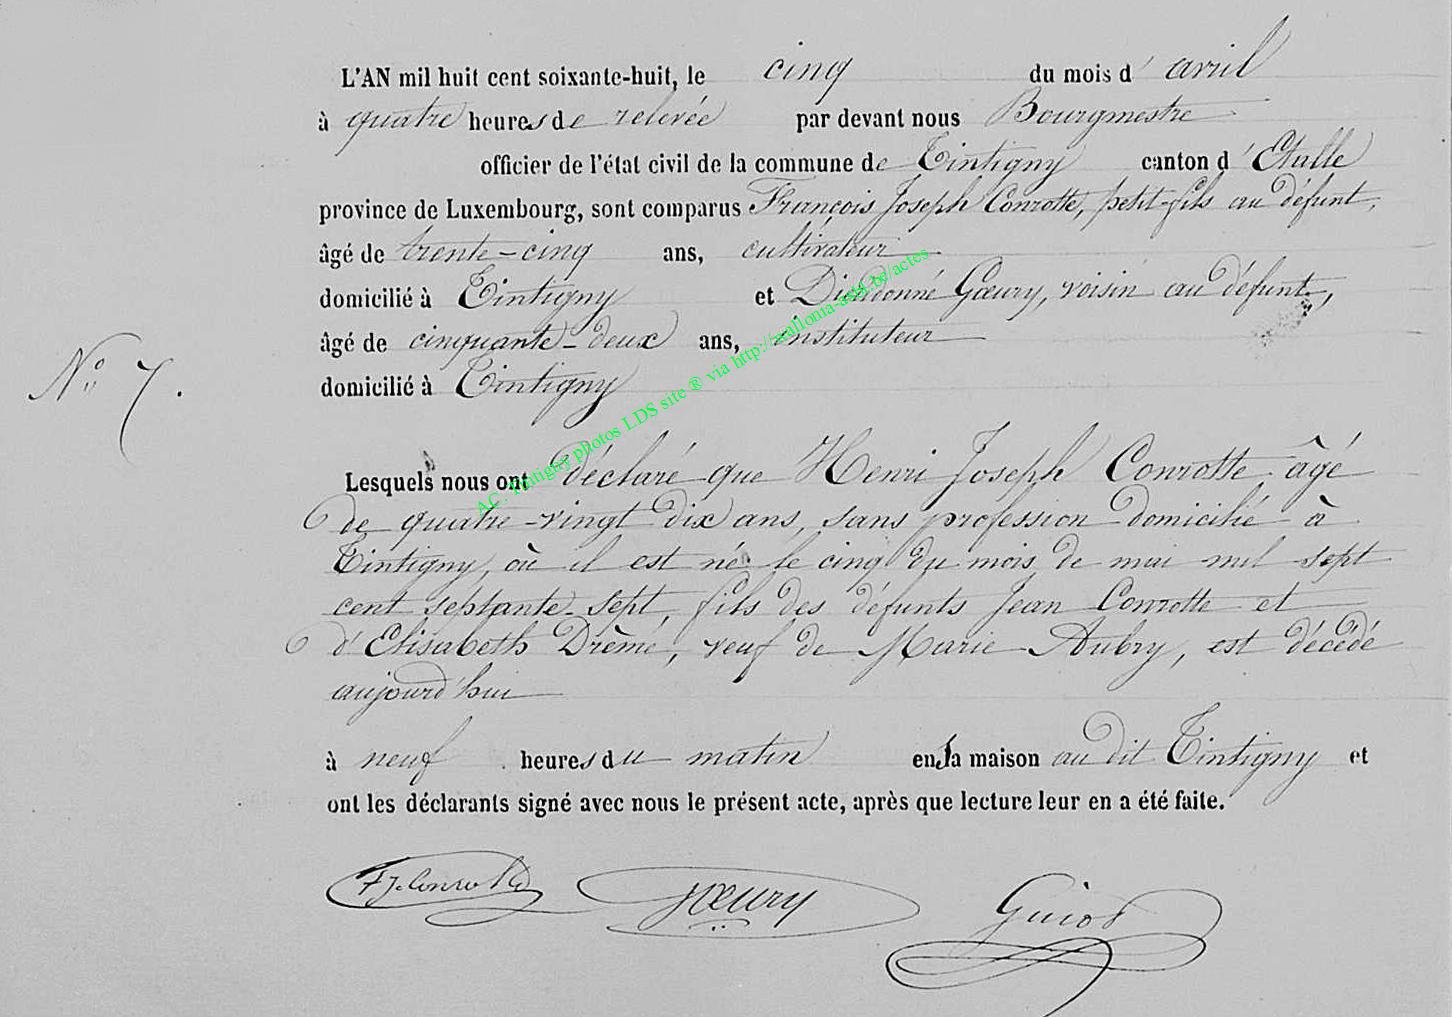 L'AN mil huit cent soixante-huit, le cinq du mois d' avril
à quatre heures de relevée par devant nous Bourgmestre
officier de l'état civil de la commune de Tintigny canton d' Etalle
province de Luxembourg, sont comparus François Joseph Conrotte, petit-fils au défunt,
âgé de trente-cinq ans, cultivateur
domicilié à Tintigny et Dieudonné Gœury, voisin au défunt,
âgé de cinquante-deux ans, instituteur
domicilié à Tintigny
N° 7.
Lesquels nous ont déclaré que Henri Joseph Conrotte âgé
de quatre-vingt dix ans, sans profession domicilié à
Tintigny, où il est né le cinq du mois de mai mil sept
cent septante-sept, fils des défunts Jean Conrotte et
d'Elisabeth Drême, veuf de Marie Aubry, est décédé
aujourd'hui
à neuf heures du matin en sa maison au dit Tintigny et
ont les déclarants signé avec nous le présent acte, après que lecture leur en a été faite.
FJ. Conrotte Gœury Guiot
AC. Tintigny photos LDS site ® via http://wallonia-asbl.be/actes